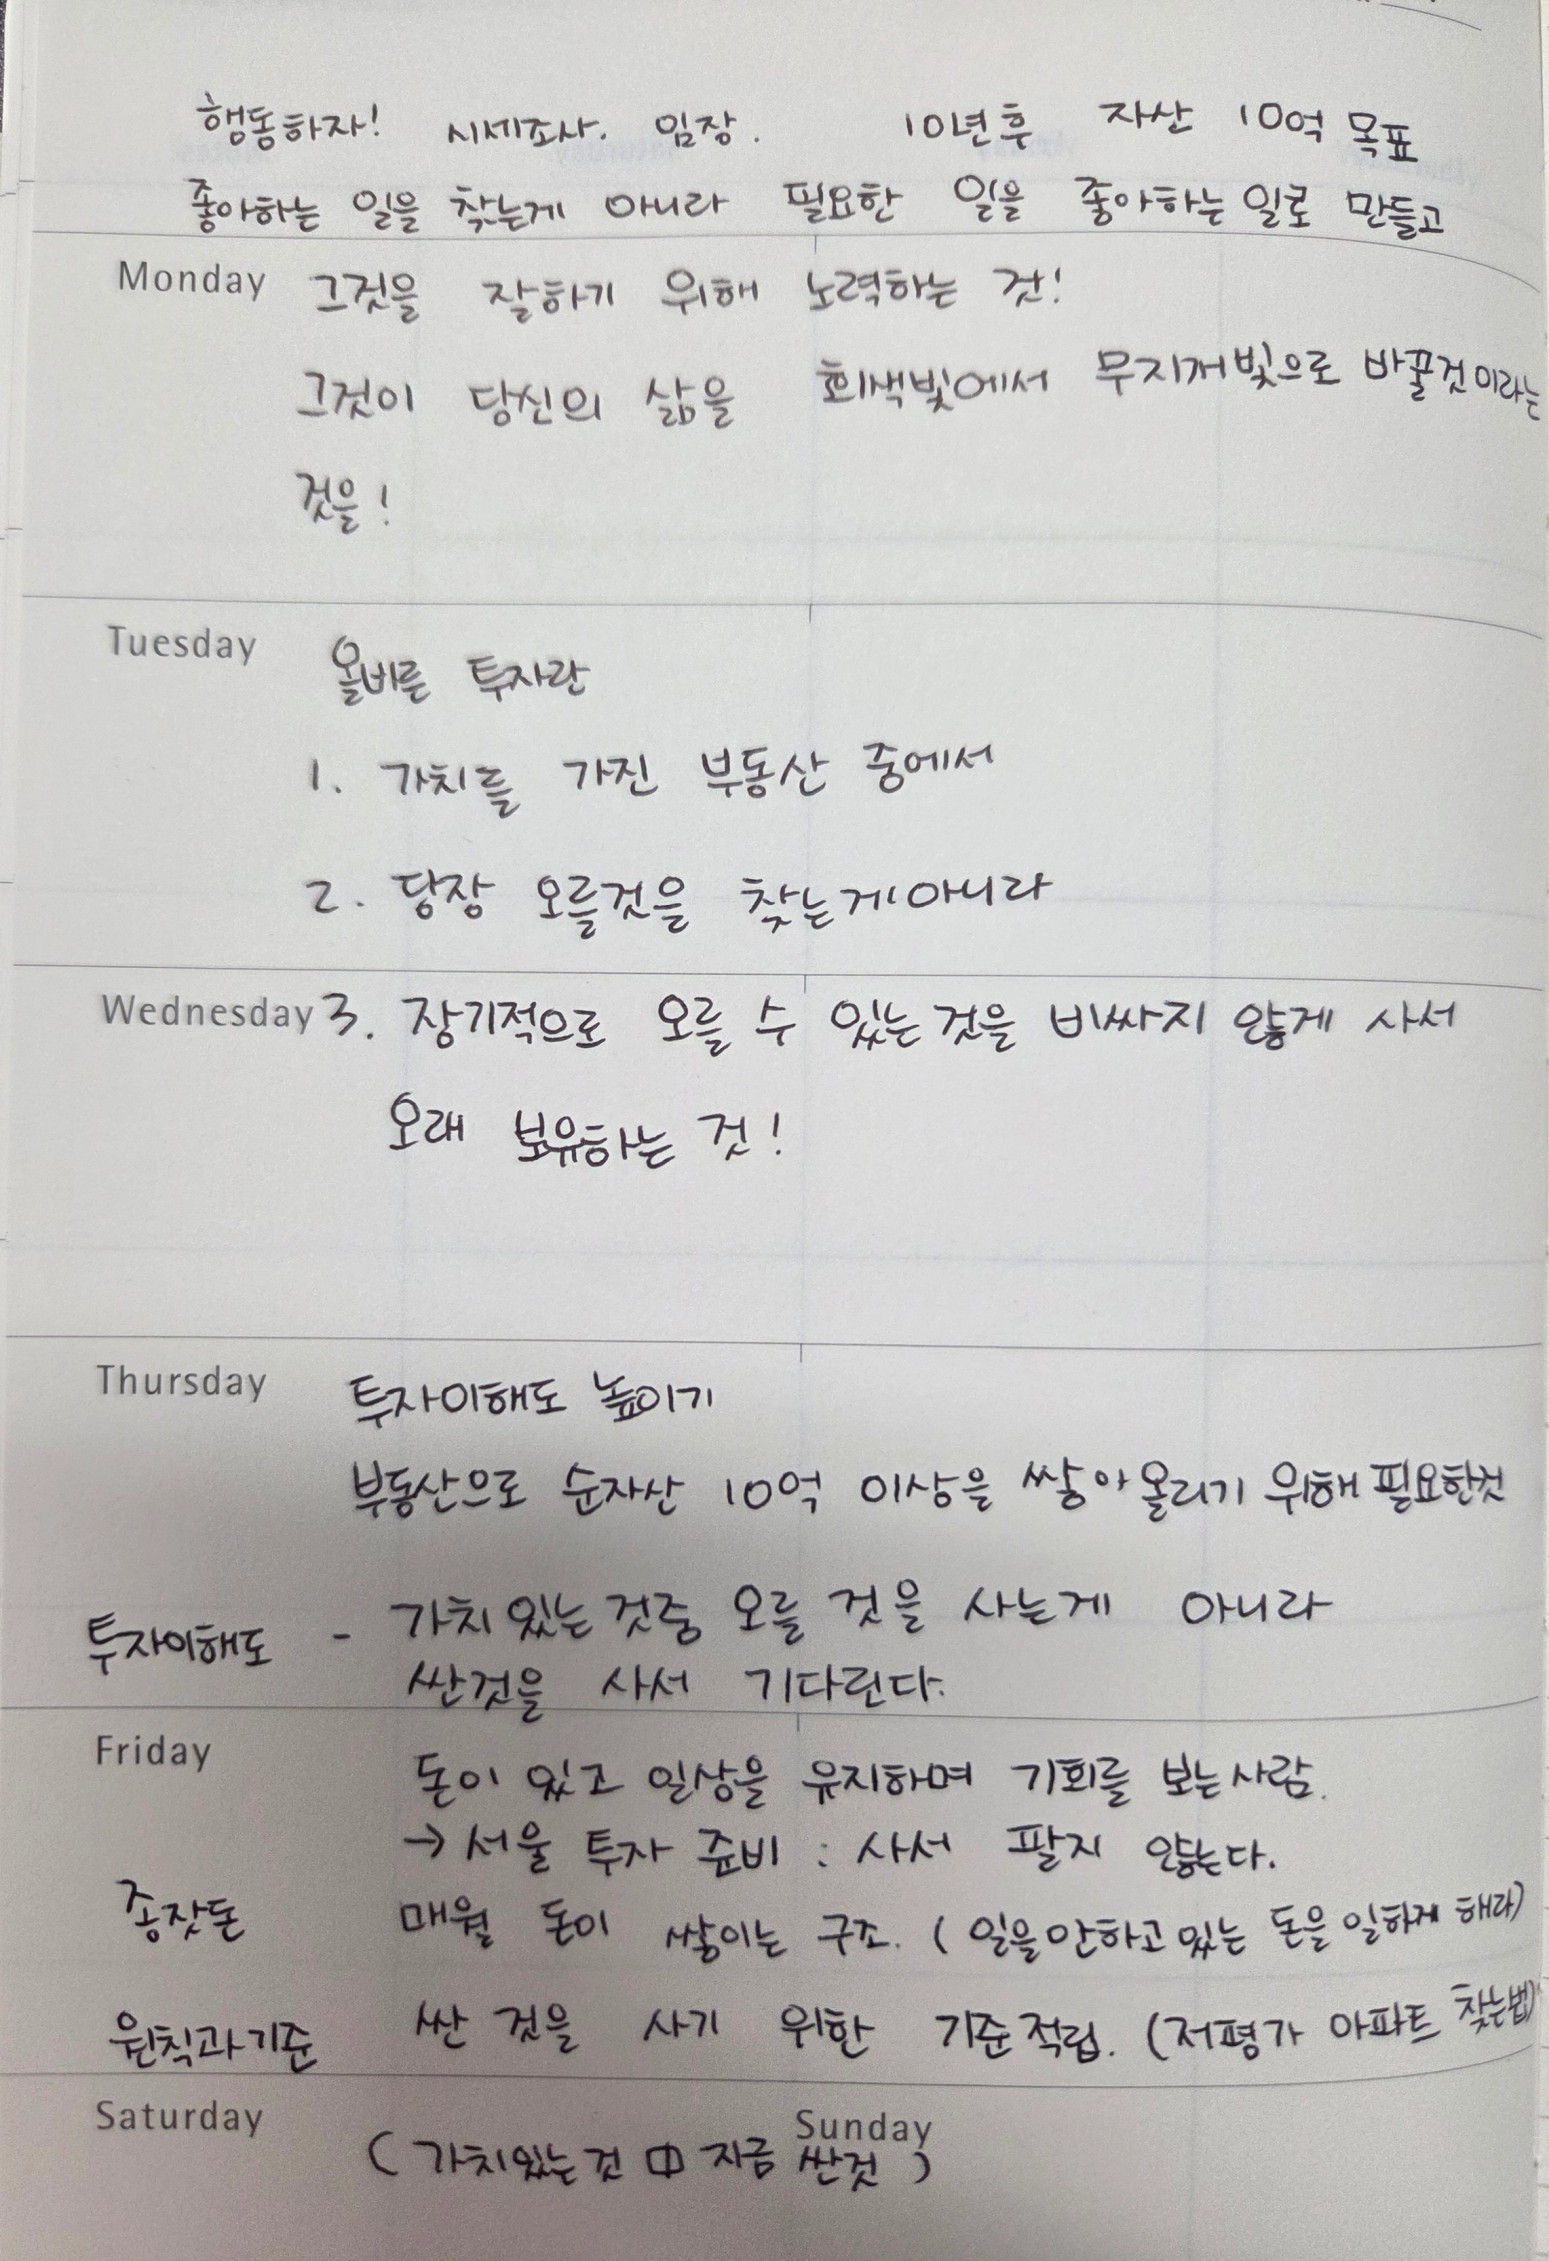 행동하자! 시세조사. 임장. 10년후 자산 10억 목표
좋아하는 일을 찾는게 아니라 필요한 일을 좋아하는 일로 만들고
Monday 그것을 잘하기 위해 노력하는 것!
그것이 당신의 삶을 회색빛에서 무지개빛으로 바꿀것이라는
것을!
Tuesday 올바른 투자란
1. 가치를 가진 부동산 중에서
2. 당장 오를것을 찾는게아니라
Wednesday 3. 장기적으로 오를 수 있는 것을 비싸지 않게 사서
오래 보유하는 것!
Thursday 투자이해도 높이기
부동산으로 순자산 10억 이상을 쌓아올리기 위해 필요한것
투자이해도 - 가치있는것중 오를 것을 사는게 아니라
싼것을 사서 기다린다.
Friday 돈이 있고 일상을 유지하며 기회를 보는사람.
→ 서울 투자 준비 : 사서 팔지 않는다.
종잣돈 매월 돈이 쌓이는 구조. (일을안하고있는 돈을일하게 해라)
원칙과기준 싼 것을 사기 위한 기준적립. (저평가 아파트 찾는법)
Saturday Sunday
(가치있는것 中 지금 싼것)